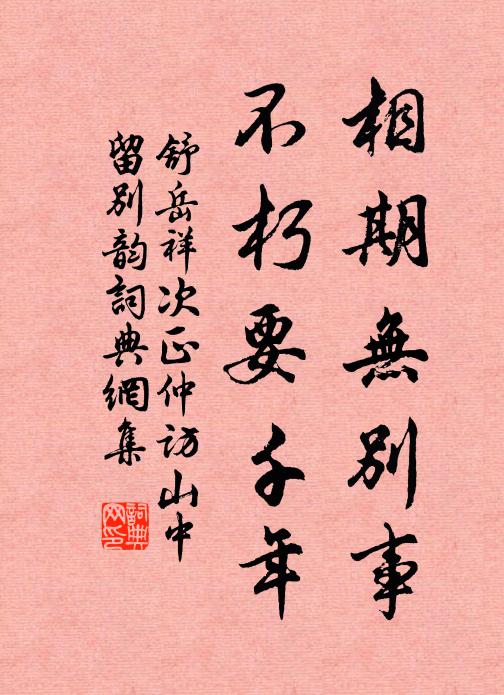 相期無別事
不朽要千年
舒岳祥次正仲访山中
留別韵詞典網集
詞典网印